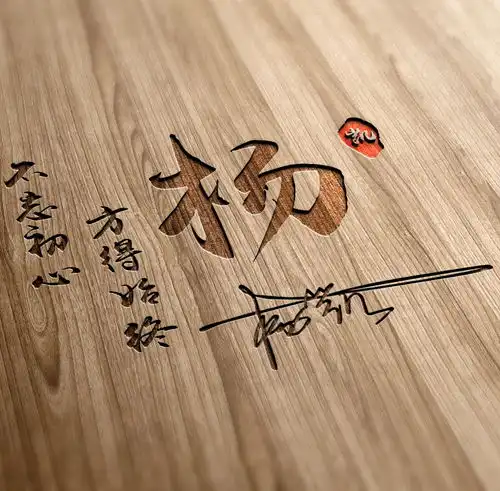 不忘初心
方得始终
杨